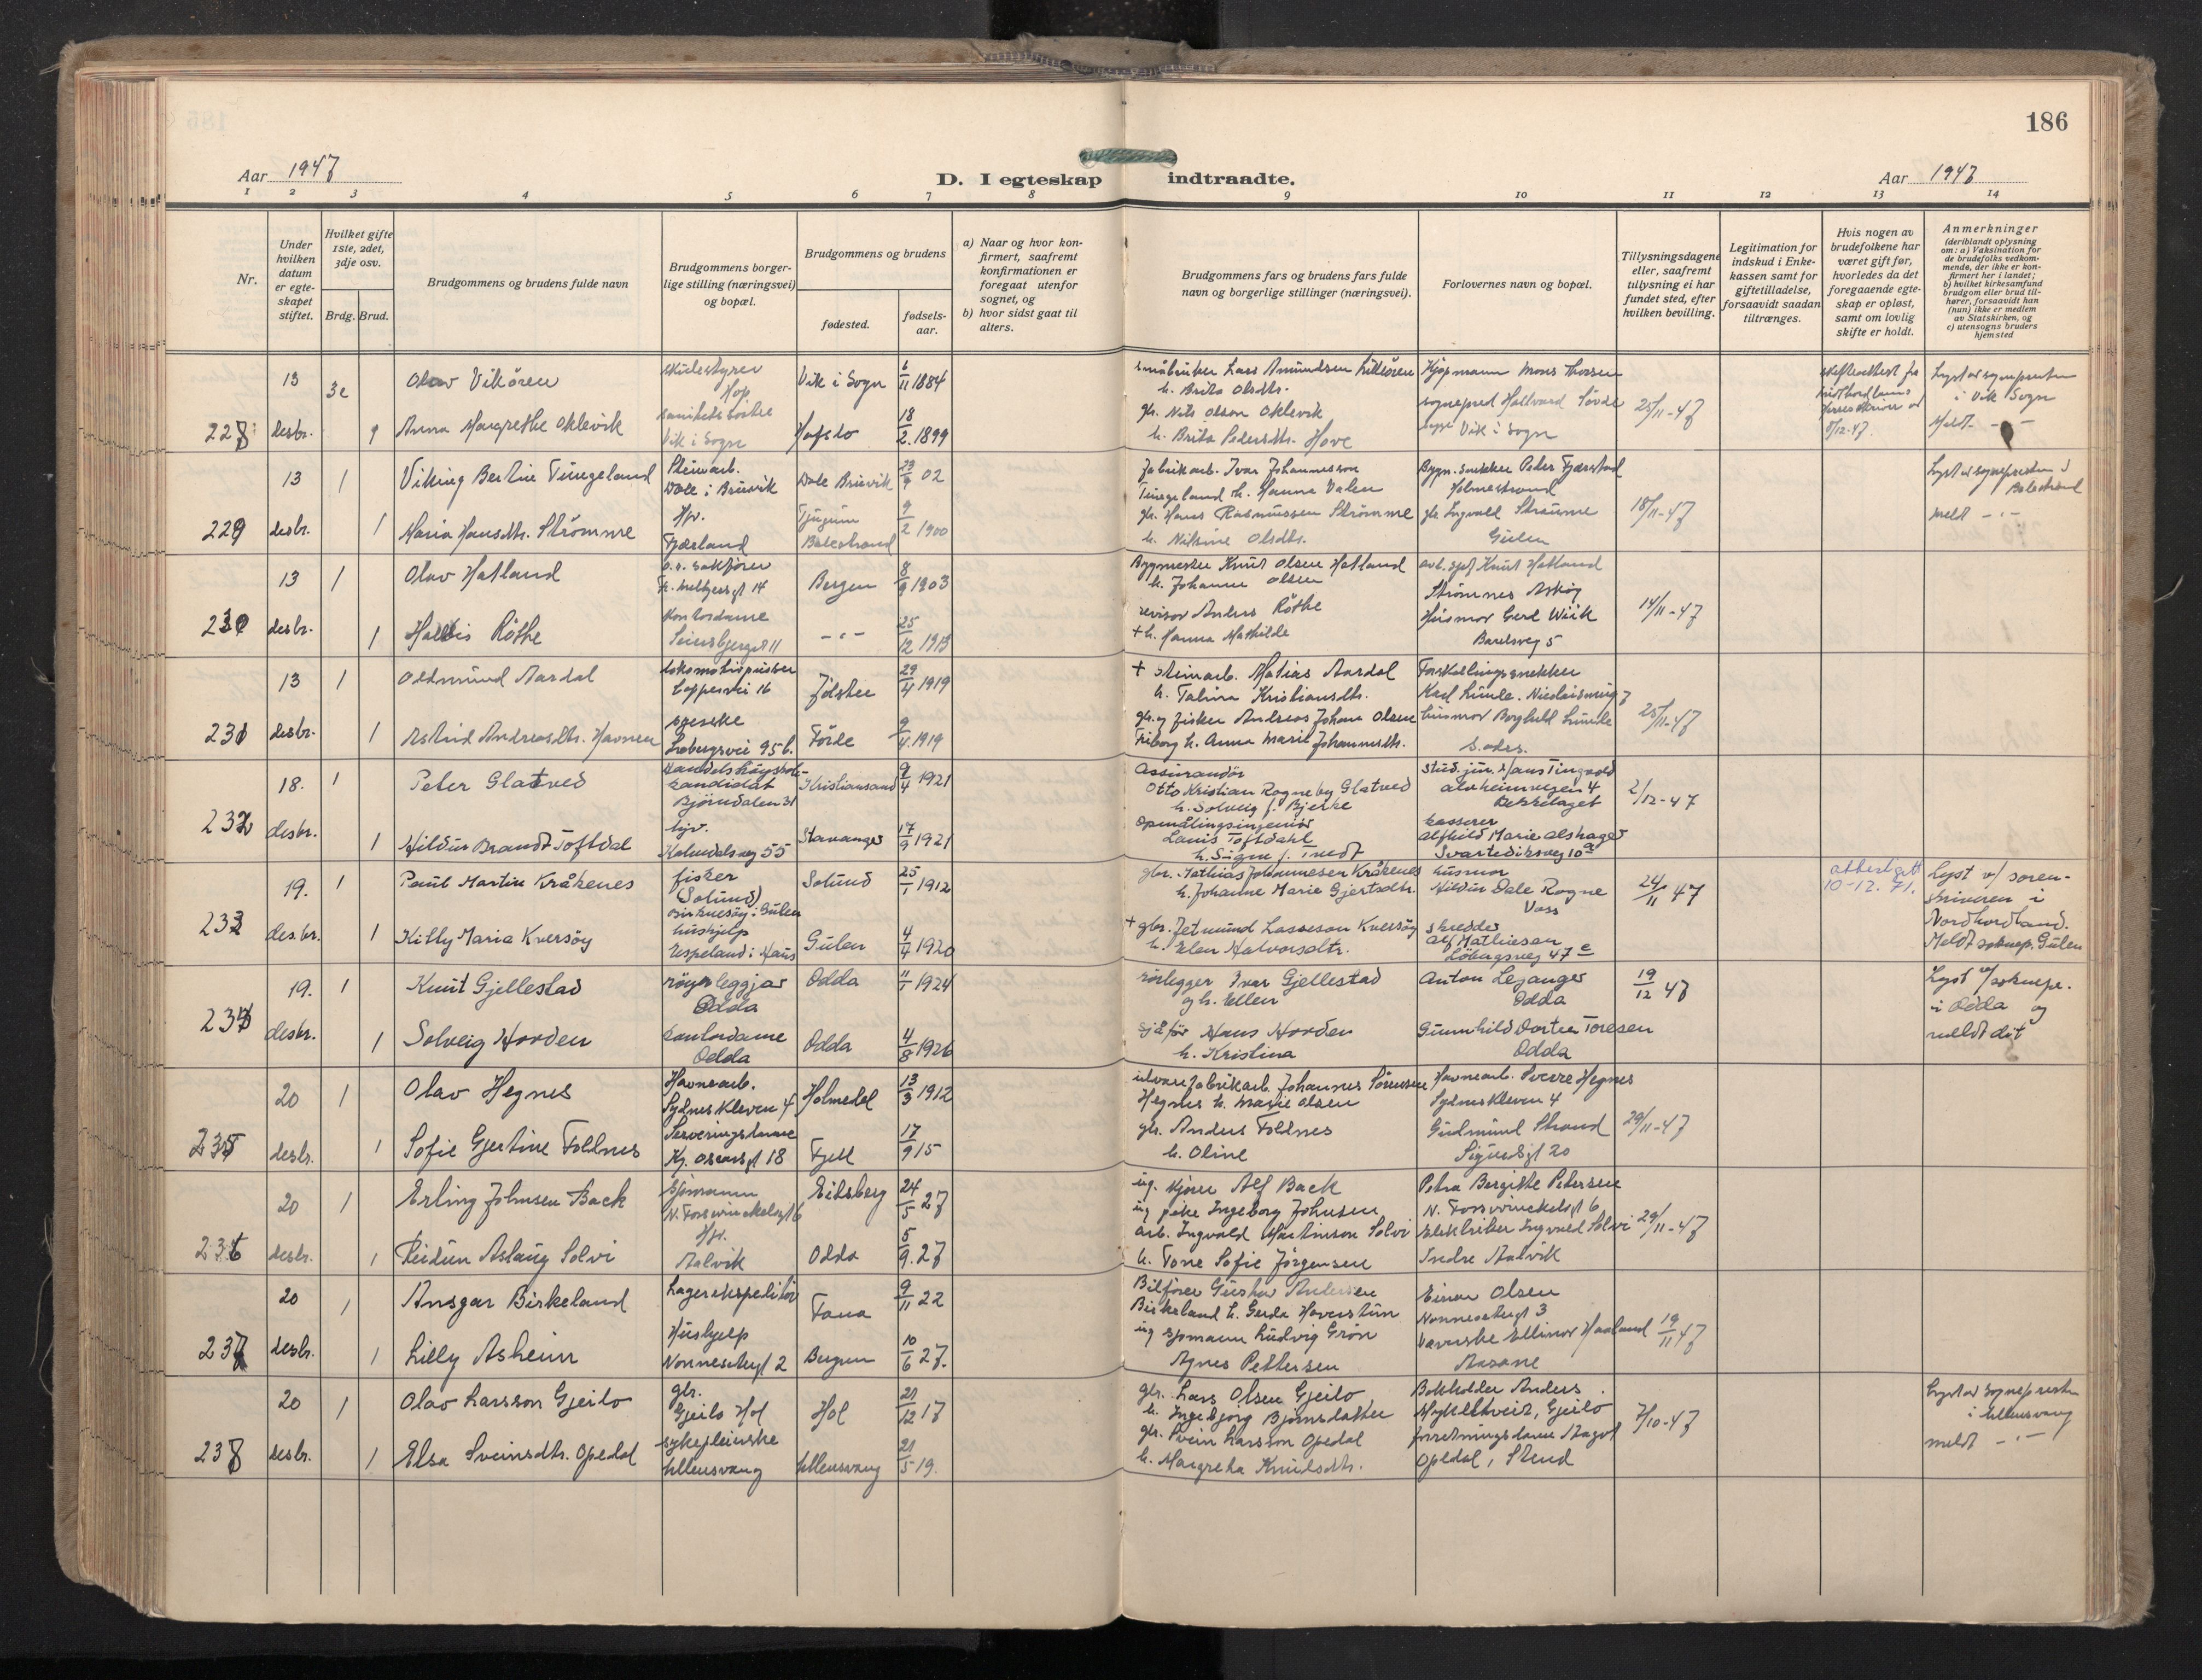 186
Aar 1947
D. I egteskap indtraadte.
Aar 1947
1 2 3 4 5 6 7 8 9 10 11 12 13 14
Nr.
Under hvilken datum er egteskapet stiftet.
Hvilket gifte 1ste, 2det, 3dje osv.
Brdg. Brud.
Brudgommens og brudens fulde navn
Brudgommens borgerlige stilling (næringsvei) og bopæl.
Brudgommens og brudens
fødested.
fødselsaar.
a) Naar og hvor konfirmert, saafremt konfirmationen er foregaat utenfor sognet, og
b) hvor sidst gaat til alters.
Brudgommens fars og brudens fars fulde navn og borgerlige stillinger (næringsvei).
Forlovernes navn og bopæl.
Tillysningsdagene eller, saafremt tillysning ei har fundet sted, efter hvilken bevilling.
Legitimation for indskud i Enkekassen samt for giftetilladelse, forsaavidt saadan tiltrænges.
Hvis nogen av brudefolkene har været gift før, hvorledes da det foregaaende egteskap er opløst, samt om lovlig skifte er holdt.
Anmerkninger (deriblandt oplysning om: a) Vaksination for de brudefolks vedkommende, der ikke er konfirmert her i landet; b) hvilket kirkesamfund brudgom eller brud tilhører, forsaavidt han (hun) ikke er medlem av Statskirken, og c) utensogns bruders hjemsted
13 Olav Vikören Hop Vik i Sogn 6/11 1884
228 desbr. Anna Margrethe Oklevik Vik i Sogn Hafslo 18/2 1899
Lars Amundsen
h. Brita Olsdtr.
gbr. Nils Olson Oklevik
h. Brita Pedersdtr. Hove
Kjøpmann Mons
Vik i Sogn
25/11-47
Lyst av sognepresten
i Vik Sogn
Meldt -"-
13 1 Viking Bertin Tungeland Steinarb. Dale i Bruvik Dale Bruvik 23/9 02
229 desbr. 1 Maria Hansdtr. Strømme Hjv. Fjærland Tjugum Balestrand 9/2 1900
Fabrikarb. Ivar Johannesson
Tungeland h. Hanna Valen
gbr. Hans Rasmussen Strømme
h. Nikoline Olsdtr.
Bygn. snekker Peder Fjærestad
Holmestrand
gbr. Ingvald Straume
Gulen
18/11-47
Lyst av sognepresten i
Balestrand
meldt -"-
13 1 Olav Hatland Bergen 8/9 1903
230 desbr. 1 Halldis Röthe Kontordame -"- 25/12 1913
Bygmester Knut Olsen Hatland
h. Johanne Olsen
revisor Anders Röthe
+ h. Hanna Mathilde
Knut Hatland
Strømnes Askøy
Husmor Gerd Wiik
14/11-47
13 1 Oddmund Aardal Lokomotivpusser 16 Jölster 29/4 1919
231 desbr. 1 Astrid Andreasdtr. Havnen Løbergsvei 95 b. Förde 9/4 1919
+ Steinarb. Matias Aardal
h. Talina Kristiansdtr.
gbr. og fisker Andreas Johan Olsen
h. Anna Marie Johannesdtr.
Forskalingssnekker
Karl Lunde. 7
husmor Borghild Lunde
s. adrs.
25/11-47
18. 1 Peter Glatved Handelshøyskolekandidat Bjørndalen 31 Kristiansand 9/4 1921
232 desbr. 1 Hildur Brandt Toftdal hjv. Kalvedalsveg 55 Stavanger 17/9 1921
Assurandör
Otto Kristian Rogneby Glatved
h. Solveig f. Bjerke
Opmålingsingeniör
Louis Toftdahl
h. Signe f. Tvedt
stud. jur. Hans Tingvold
Alvheimvegen 4
Bekkelaget
kasserer
Alfhild Marie Alshager
Svartediksveg 10 a
2/12-47
19. 1 Paul Martin Kråkenes fisker (Solund) Birknesöy i Gulen Solund 25/1 1912
233 des.br. 1 Kitty Maria Kversöy hushjelp Espeland i Haus Gulen 4/4 1920
gbr. Mathias Johannesen Kråkenes
h. Johanne Marie Gjertsdtr.
+ gbr. Jetmund Lasseson Kversöy
h. Elen Halvorsdtr.
husmor
Hildur Dale Rogne
Voss
skredder
Alf Mathiesen
Löbergsveg 47 e
24/11 47
attest gitt
10-12.71.
Lyst v/ sorenskriveren i
Nordhordland.
Meldt soknep. Gulen
19. 1 Knut Gjellestad röyrleggjar Odda Odda 11/1 1924
234 desbr. 1 Solveig Horden kontordame Odda Odda 4/8 1926
rörlegger Ivar Gjellestad
og h. Ellen
sjåför Hans Horden
h. Kristina
Anton Leganger
Odda
Gunnhild Dortea Toresen
Odda
19/12 47
Lyst v/soknepr.
i Odda og
meldt dit
20 1 Olav Hegnes Havnearb. Sydneskleven 4 Holmedal 13/3 1912
235 desbr. 1 Sofie Gjertine Foldnes Serveringsdame Kg. Oscarsgt 18 Fjell 17/9 15
fabrikarb. Johannes Sörensen
Hegnes h. Marie Olsen
gbr. Anders Foldnes
h. Oline
Havnearb. Sverre Hegnes
Sydneskleven 4
Gudmund Strand
Sigurdsgt 20
29/11-47
20 1 Erling Johnsen Back Sjømann 6 Eidsberg 24/5 27
236 desbr. 1 Reidun Aslaug Solvi Hjv. Aalvik Odda 5/9. 27
Alf Back
Ingeborg Johnsen
arb. Ingvald Martinson Solvi
h. Tone Sofie Jörgensen
Petra Bergitte Petersen
6
Elektriker Ingvald Solvi
Indre Aalvik
29/11-47
20 1 Ansgar Birkeland Lagerekspeditör Fana 9/11 22
237 desbr. 1 Lilly Asheim Hushjelp Nonnesetergt 2 Bergen 10/6 27.
Bilfører Gustav Andersen
Birkeland h. Gerda Haverstun
ug sjømann Ludvig Grön
Agnes Pettersen
Einar Olsen
Nonnesetergt 3
Ellinor Haaland
Aasane
19/11 47
20 1 Olav Larsson Gjeilo gbr. Gjeilo Hol Hol 21/12 17
238 desbr. 1 Elsa Sveinsdtr. Opedal sykepleierske Ullensvang Ullensvang 21/5 19.
gbr. Lars Olsen Gjeilo
h. Ingebjørg Bjørnsdatter
gbr. Svein Larsson Opedal
h. Margreta Knudsdtr.
Bokholder Anders
Myklethveit, Gjeilo
forretningsdame Aagot
Opedal, Stend
7/10-47
Lyst av sognepresten
i Ullensvang
meldt -"-